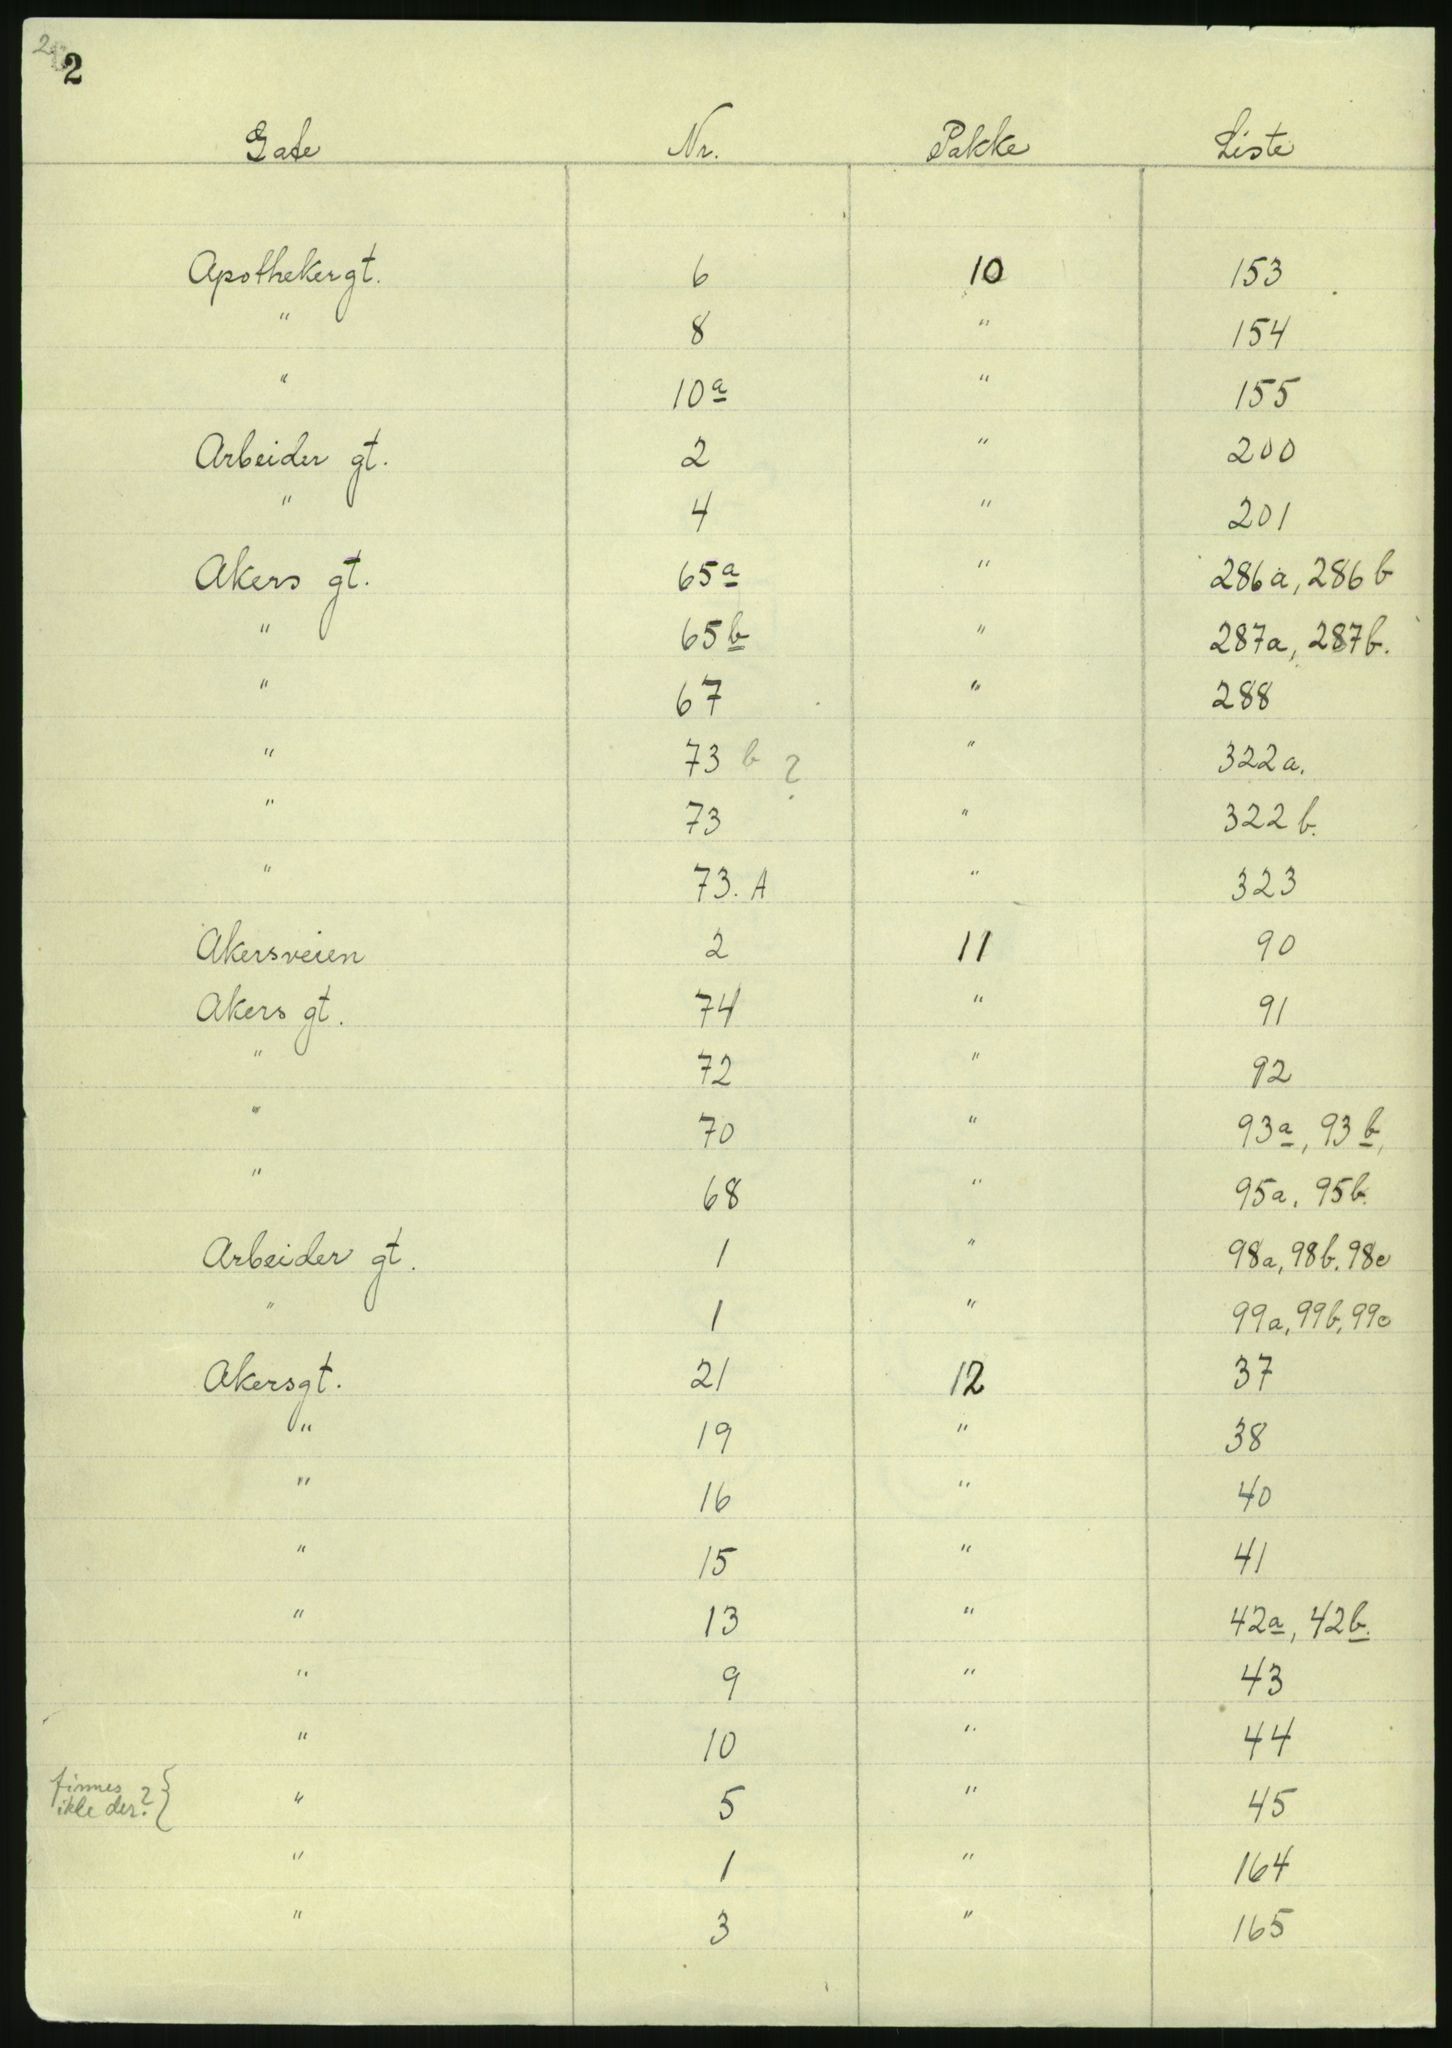 2
2
Gate Nr. Pakke Liste
Apothekergt. 6 10 153
" 8 " 154
" 10a " 155
Arbeider gt. 2 " 200
" 4 " 201
Akers gt. 65a " 286a, 286b
" 65b " 287a, 287b.
" 67 " 288
" 73 b ? " 322a.
" 73 " 322b.
" 73. A " 323
Akersveien 2 11 90
Akers gt. 74 " 91
" 72 " 92
" 70 " 93a, 93b,
" 68 " 95a, 95b.
Arbeider gt. 1 " 98a, 98b. 98c
" 1 " 99a, 99b, 99c
Akersgt. 21 12 37
" 19 " 38
" 16 " 40
" 15 " 41
" 13 " 42a, 42b.
" 9 " 43
" 10 " 44
finnes
ikke der? { " 5 " 45
" 1 " 164
" 3 " 165